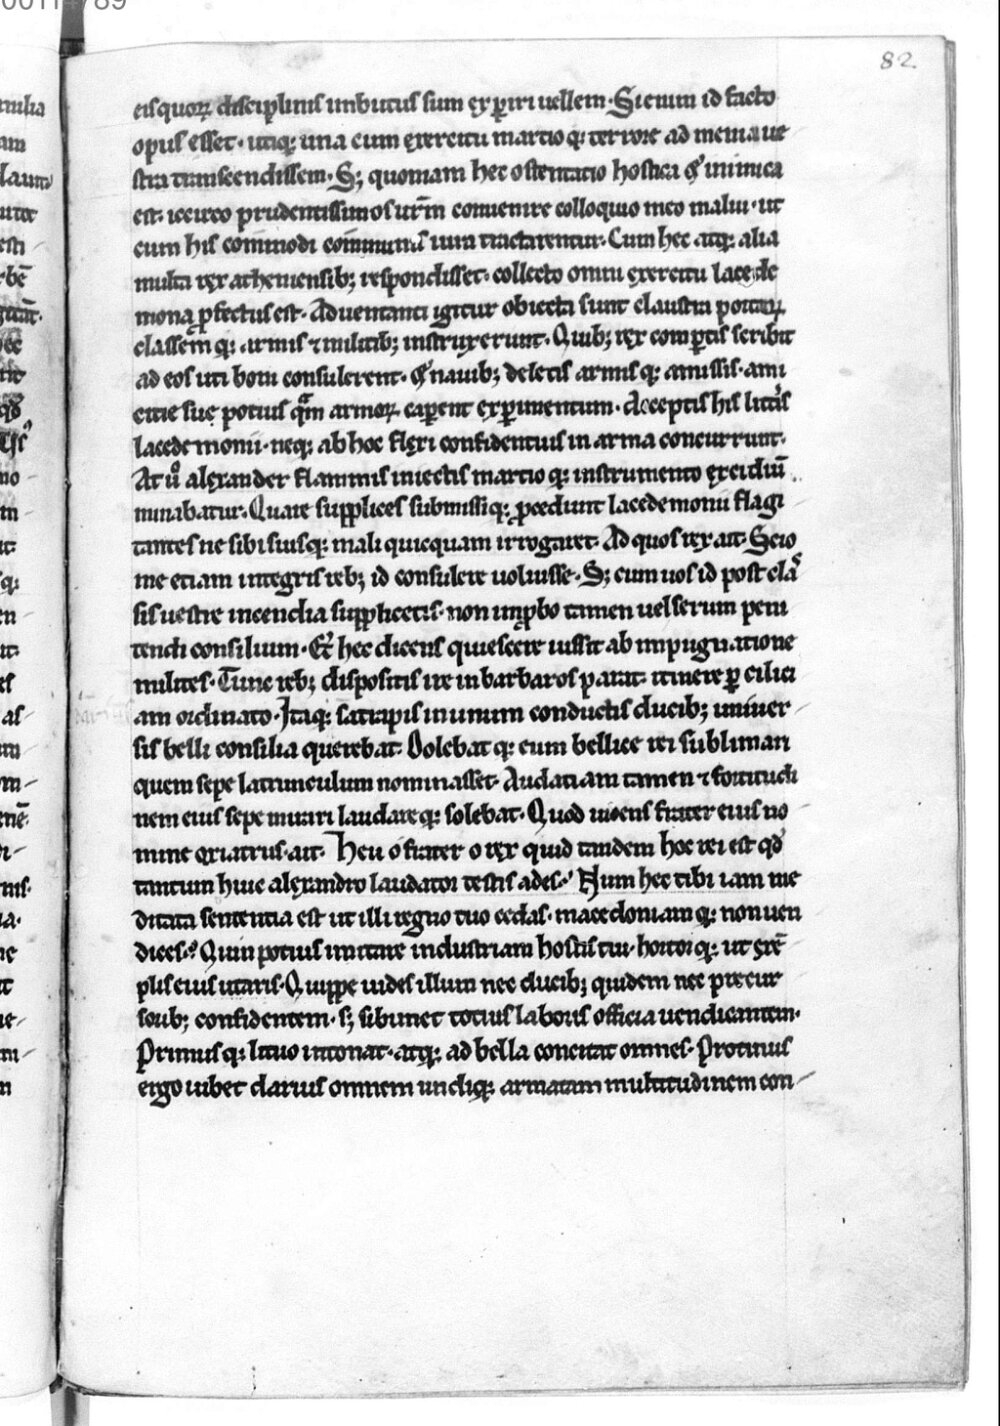 82
eisquoꝝ disciplinis imbutus sum exꝑiri uellem· Si enim id facto
opus esset· utiqꝫ una cum exercitu martio qꝫ terrore ad menia ue
stra transcendissem· Sꝫ quoniam hec ostentatio hostica ⁊ inimica
est· iccirco prudentissimos ur̄m conuenire colloquio meo malui· ut
cum his commodi communis iura tractarentur· Cum hec atqꝫ alia
multa rex atheniensibꝫ respondisset· collecto omni exercitu lacede
mona ꝓfectus est· Aduentanti igitur obiecta sunt claustra portaꝝ
classem qꝫ armis ⁊ militibꝫ instruxerunt· Quibꝫ rex comꝑtis scribit
ad eos uti boni consulerent· nauibꝫ deletis armis qꝫ amissis· ami
citie sue potius qͣm armoꝝ caꝑent exꝑimentum· Acceptis his litt̾is
lacedemonii· neqꝫ ab hoc flexi confidentius in arma concurrunt·
At uͦ alexander flammis iniectis martio qꝫ instrumento excidiū
minabatur· Quare supplices submissiqꝫ ꝓcedunt lacedemonii flagi
tantes ne sibi suisqꝫ mali quicquam irrogaret· Ad quos rex ait· Scio
me etiam integris rebꝫ id consulere uoluisse· Sꝫ cum uos id post clas
sis uestre incendia supplicetis· non imꝓbo tamen uel serum peni
tendi consilium· Et hec dicens quiescere iussit ab impugnatione
milites· Tunc rebꝫ dispositis ire in barbaros parat· itinere ꝑ cilici
am ordinato· Itaqꝫ satrapis in unum conductis ducibꝫ uniuer
sis belli consilia querebat· Dolebat qꝫ eum bellice rei sublimari
quem sepe latrunculum nominasset· Audatiam tamen ⁊ fortitudi
nem eius sepe mirari laudare qꝫ solebat· Quod uidens frater eius no
mine oxiatrus· ait· Heu o frater o rex quid tandem hoc rei est qd̾
tantum huic alexandro laudator testis ades· Num hec tibi iam me
ditata sententia est ut illi regno tuo cedas· macedoniam qꝫ non uen
dices· Quin potius imitare industriam hostis tui· hortor qꝫ ut exē
plis eius utaris· Quippe uides illum nec ducibꝫ quidem nec precur
soribꝫ confidentem· sꝫ sibimet totius laboris officia uendicantem·
Primus qꝫ lituo intonat· atqꝫ ad bella concitat omnes· Protinus
ergo iubet darius omnem undiqꝫ armatam multitudinem con